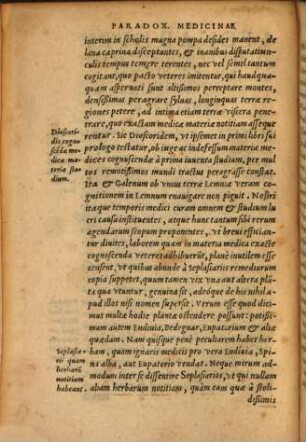 PARADOX. MEDICINAE
interim in scholis magna pompa desides manent, de
lana caprina disceptantes, & inanibus disputatiun-
culis tempus temere terentes, nec vel semel tantum
cogitant, quo pacto veteres imitentur, qui haudqua-
quam aspernati sunt altissimos perreptare montes,
densissimas peragrare sylvas, longinquas terræ re-
giones petere, ad intima etiam terræ viscera pene-
trare, quo exactam medicæ materiæ notitiam asseque
Dioscori-
dis cogno-
scēdæ me-
dicæ ma-
teriæ stu-
dium.
rentur. Sic Dioscoridem, vt ipsemet in primi libri sui
prologo testatur, ob iuge ac indefessum materiæ me-
dices cognoscendæ à prima iuuenta studium, per mul
tos remotissimos mundi tractus peragrasse constat.
Ita & Galenum ob vnius terræ Lemniæ veram co-
gnitionem in Lemnum enauigare non piguit. Nostri
itaque temporis medici curam omnem & studium lu
cri causa instituentes, atque hunc tantum sibi rerum
agendarum scopum proponentes, vt breui efficiun-
tur diuites, laborem quam in materia medica exacte
cognoscenda veteres adhibuerūt, planè inutilem esse
censent, vt quibus abunde à Seplasiarijs remediorum
copia suppetet, quum tamen vix vna aut altera plā-
ta qua vtuntur, genuina sit, adeóque de his nihil a-
pud illos nisi nomen supersit. Verum esse quod dici-
mus multæ hodie plantæ ostendere possunt: potis-
simum autem Endiuia, Bedeguar, Eupatorium & aliæ
Seplasia-
rij quam
herbarū
notitiam
habeant.
quædam. Nam quisque penè peculiarem habet her-
bam, quam ignaris medicis pro vera Endiuia, Spi-
na alba, aut Eupatorio vendat. Neque mirum ad-
modum inter se dissentire Seplasiarios, vt qui nullam
aliam herbarum notitiam, quàm eam quā à stoli-
dissimis